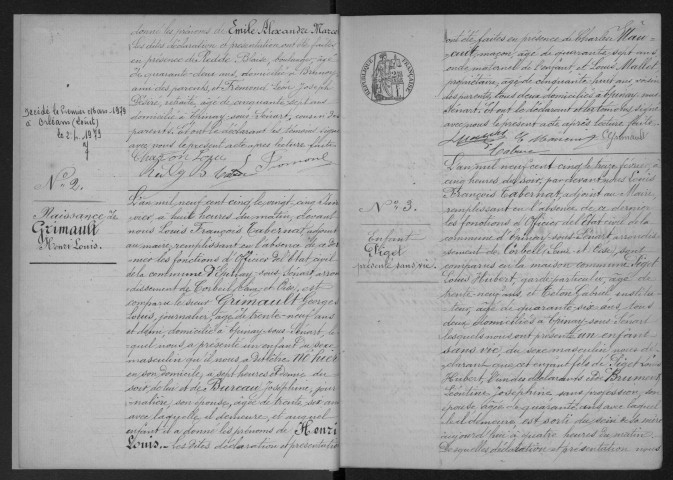 donné les prénoms de Emile Alexandre Marcel
Les dites déclaration et présentation ont été faites
en présence de
de quarante deux ans, domicilié à Brunoy
ami des parents, et Fremont Léon Joseph
Désiré, âgé de cinquante sept ans
domicilié à Epinay sous Sénart, cousin des
parents. Et ont le déclarant et les témoins signé
avec nous le présent acte après lecture faite.
Fremont
Décédé le premier mars 1979
à Orléans (Loiret)
le 2-4-1979
No 2.
Naissance de
Grimault
Henri Louis.
L'an mil neuf cent cinq le vingt cinq
janvier, à huit heures du matin, devant
nous Louis François Tabernat, adjoint
au maire, remplissant en l'absence de ce der-
nier les fonctions d'Officier de l'Etat civil
de la commune d'Epinay-sous-Sénart arron-
dissement de Corbeil, Seine et Oise, est
comparu le sieur Grimault Georges
Louis, journalier, âgé de trente neuf ans
et demi, domicilié à Epinay sous Sénart, le-
quel nous a présenté un enfant du sexe
masculin qu'il nous a déclaré né hier
en son domicile, à sept heures et demie du
soir, de lui et de Bureau Joséphine, jour-
nalière, son épouse, âgée de trente six ans
avec laquelle il demeure, et auquel
enfant il a donné les prénoms de Henri
Louis. Les dites déclaration et présentation
REPUBLIQUE FRANÇAISE
ont été faites en présence de Charles
maçon, âgé de quarante sept ans
oncle maternel de l'enfant et Louis Mallet
propriétaire, âgé de cinquante huit ans voisin
des parents, tous deux domiciliés à Epinay-sous-
Sénart. Et ont le déclarant et les témoins signé
avec nous le présent acte après lecture faite.
Grimault
No 3.
Enfant
Piget
présenté sans vie.
L'an mil neuf cent cinq le
cinq heures du soir, par devant nous Louis
François Tabernat, adjoint au Maire,
remplissant en l'absence de ce dernier
les fonctions d'Officier de l'Etat civil de la
commune d'Epinay sous Sénart arrondis-
sement de Corbeil, Seine et Oise, sont
comparus en la maison commune Piget
Louis Hubert, garde particulier, âgé de
trente neuf ans, et Gabriel, institu-
teur, âgé de quarante six ans, tous
deux domiciliés à Epinay sous Sénart
lesquels nous ont présenté un enfant
sans vie, du sexe masculin, nous dé-
clarant que cet enfant fils de Piget Louis
Hubert, l'un des déclarants et de
Léontine Joséphine sans profession, son
épouse âgée de quarante ans avec laquelle
il demeure, est sorti du sein de sa mère
aujourd'hui à quatre heures du matin.
Lesquelles déclaration et présentation nous